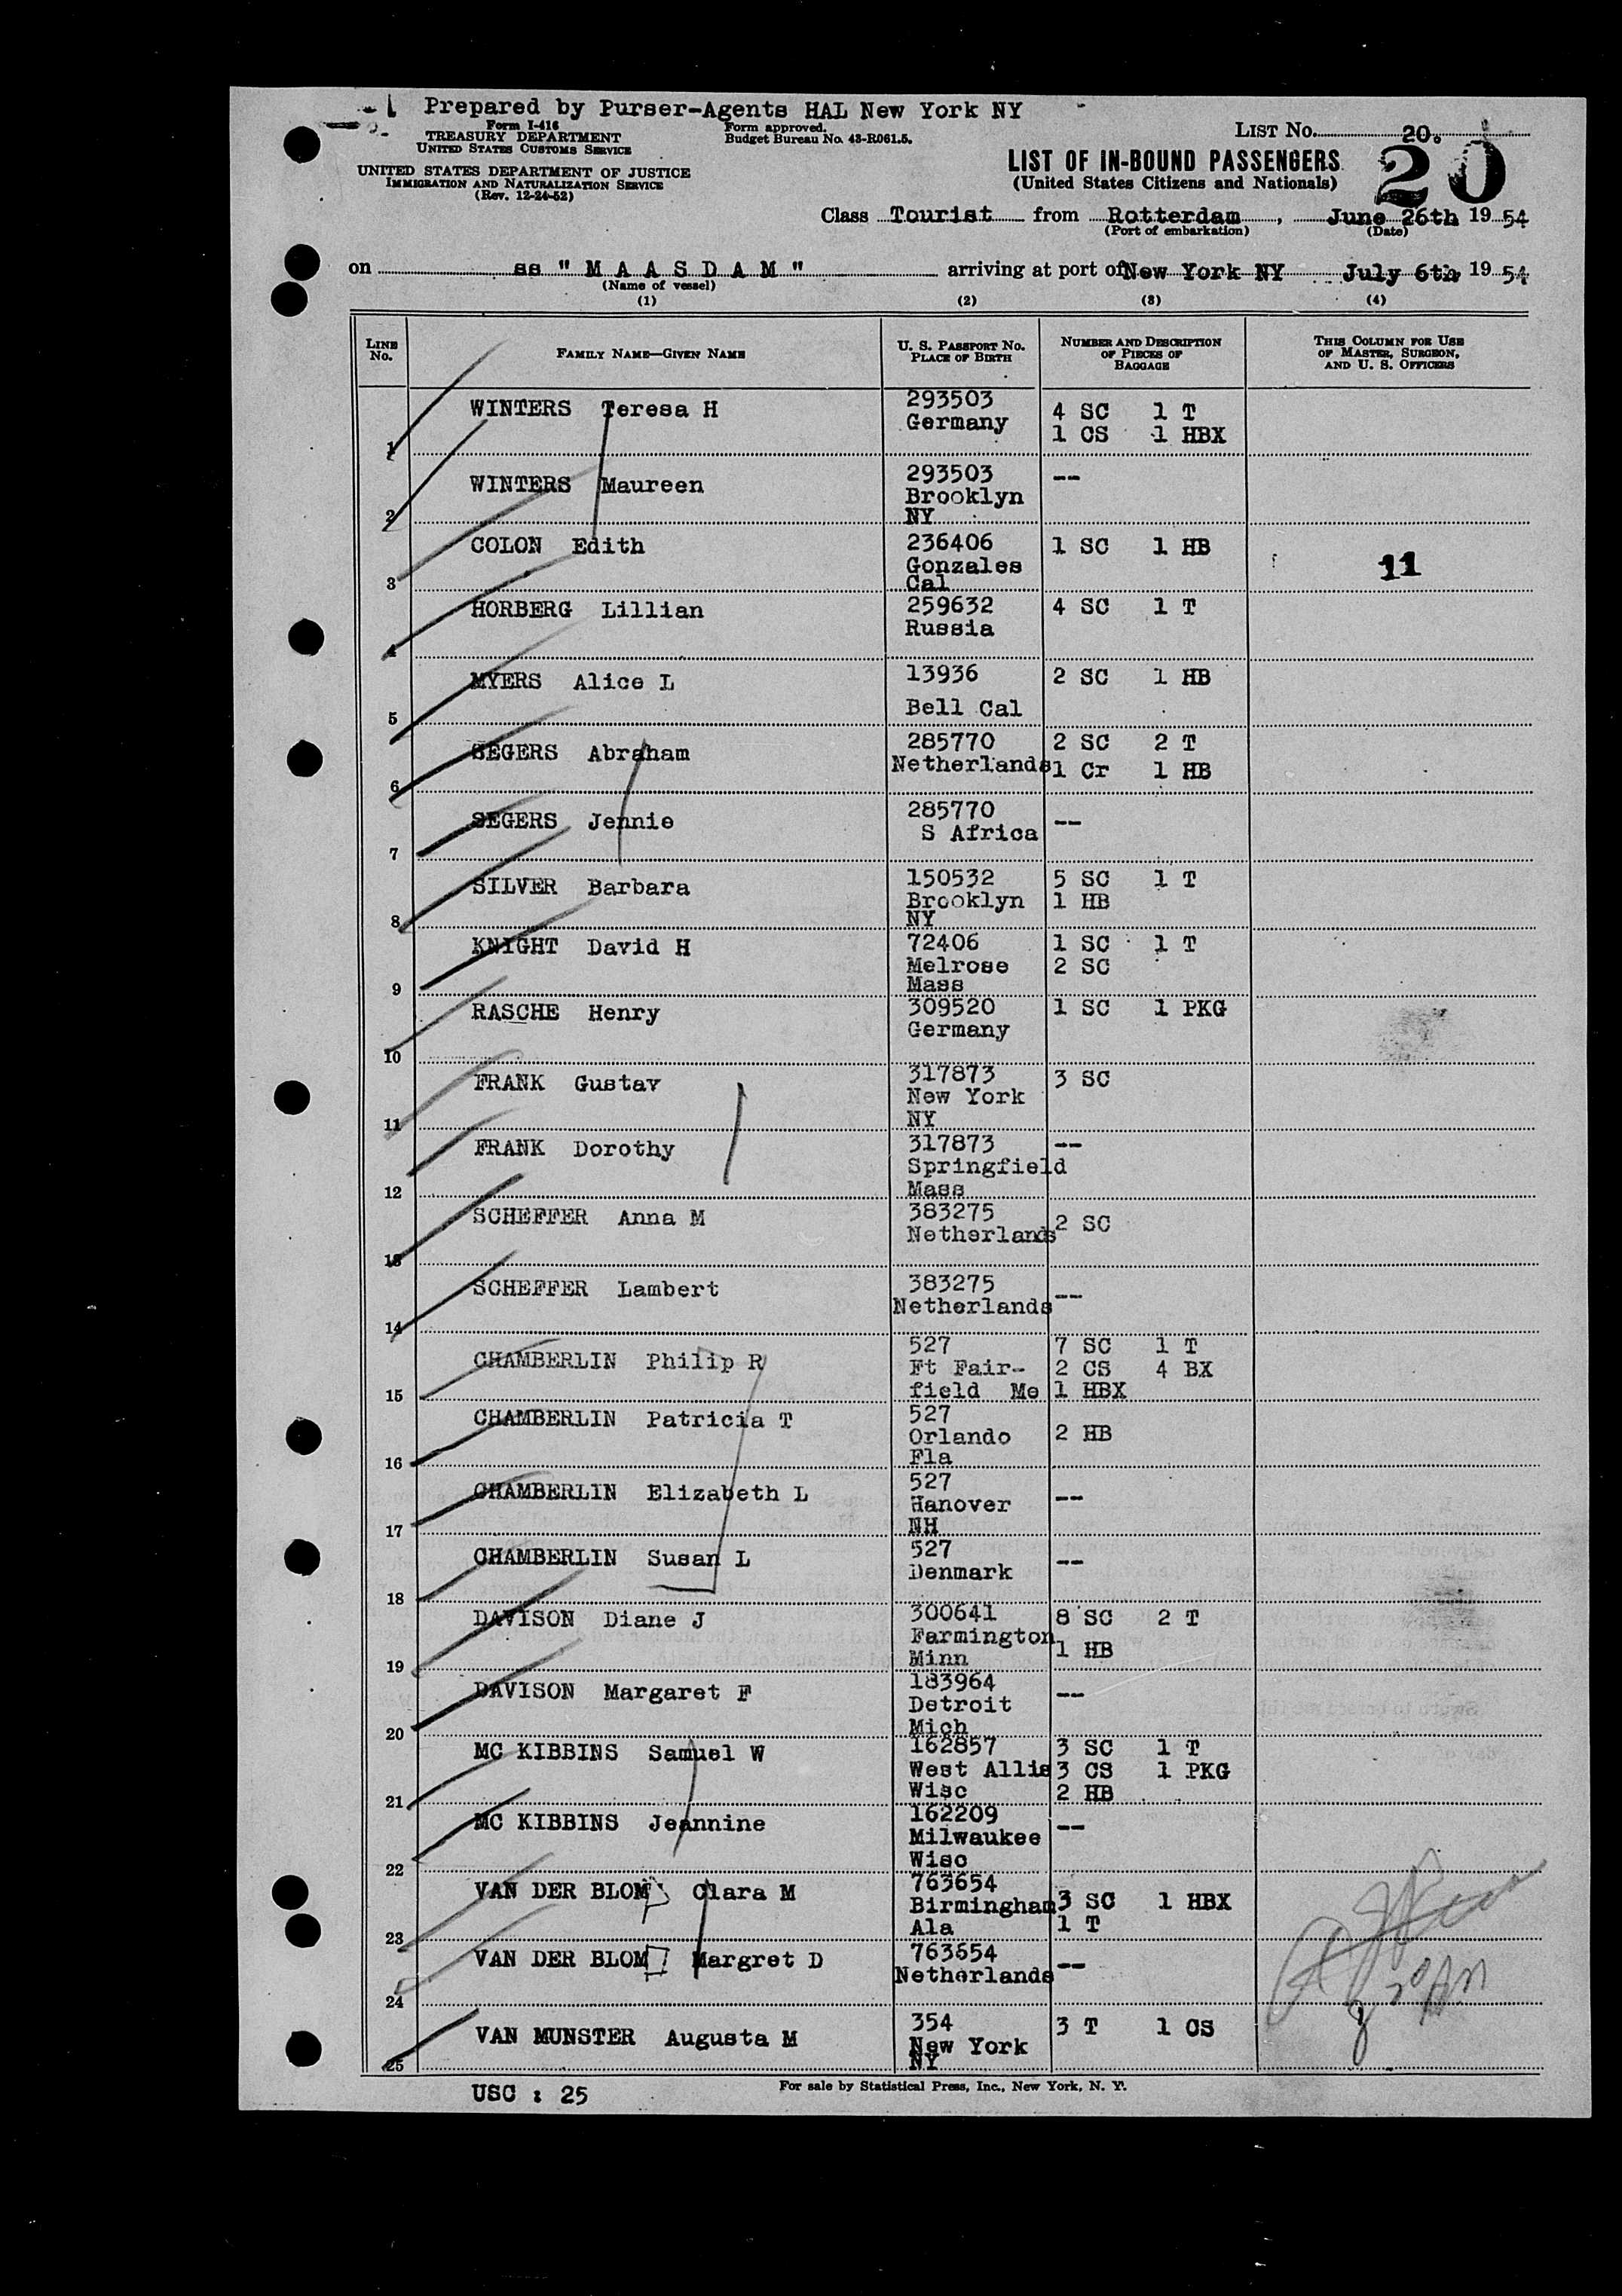 Prepared by Purser-Agents HAL New York NY
Form I-416
TREASURY DEPARTMENT
UNITED STATES CUSTOMS SERVICE
Form approved.
Budget Bureau No. 43-R061.5.
UNITED STATES DEPARTMENT OF JUSTICE
IMMIGRATION AND NATURALIZATION SERVICE
(Rev. 12-24-52)
LIST NO. 20.
20
LIST OF IN-BOUND PASSENGERS
(United States Citizens and Nationals)
Class Tourist from Rotterdam, June 26th 19 54
(Port of embarkation) (Date)
on ss " M A A S D A M " arriving at port of New York NY July 6th 19 54
(Name of vessel)
(1) (2) (3) (4)
LINE No. FAMILY NAME—GIVEN NAME U. S. PASSPORT NO. PLACE OF BIRTH NUMBER AND DESCRIPTION OF PIECES OF BAGGAGE THIS COLUMN FOR USE OF MASTER, SURGEON, AND U. S. OFFICERS
1 WINTERS Teresa H 293503 Germany 4 SC 1 T 1 CS 1 HBX
2 WINTERS Maureen 293503 Brooklyn NY --
3 COLON Edith 236406 Gonzales Cal 1 SC 1 HB 11
4 HORBERG Lillian 259632 Russia 4 SC 1 T
5 MYERS Alice L 13936 Bell Cal 2 SC 1 HB
6 SEGERS Abraham 285770 Netherlands 2 SC 2 T 1 Cr 1 HB
7 SEGERS Jennie 285770 S Africa --
8 SILVER Barbara 150532 Brooklyn NY 5 SC 1 T 1 HB
9 KNIGHT David H 72406 Melrose Mass 1 SC 1 T 2 SC
10 RASCHE Henry 309520 Germany 1 SC 1 PKG
11 FRANK Gustav 317873 New York NY 3 SC
12 FRANK Dorothy 317873 Springfield Mass --
13 SCHEFFER Anna M 383275 Netherlands 2 SC
14 SCHEFFER Lambert 383275 Netherlands --
15 CHAMBERLIN Philip R 527 Ft Fair- field Me 7 SC 1 T 2 CS 4 BX 1 HBX
16 CHAMBERLIN Patricia T 527 Orlando Fla 2 HB
17 CHAMBERLIN Elizabeth L 527 Hanover NH --
18 CHAMBERLIN Susan L 527 Denmark --
19 DAVISON Diane J 300641 Farmington Minn 8 SC 2 T 1 HB
20 DAVISON Margaret F 183964 Detroit Mich --
21 MC KIBBINS Samuel W 162857 West Allis Wisc 3 SC 1 T 3 CS 1 PKG 2 HB
22 MC KIBBINS Jeannine 162209 Milwaukee Wisc --
23 VAN DER BLOM Clara M 763654 Birmingham Ala 3 SC 1 HBX 1 T
24 VAN DER BLOM Margret D 763654 Netherlands --
25 VAN MUNSTER Augusta M 354 New York NY 3 T 1 CS
USC : 25
For sale by Statistical Press, Inc., New York, N. Y.